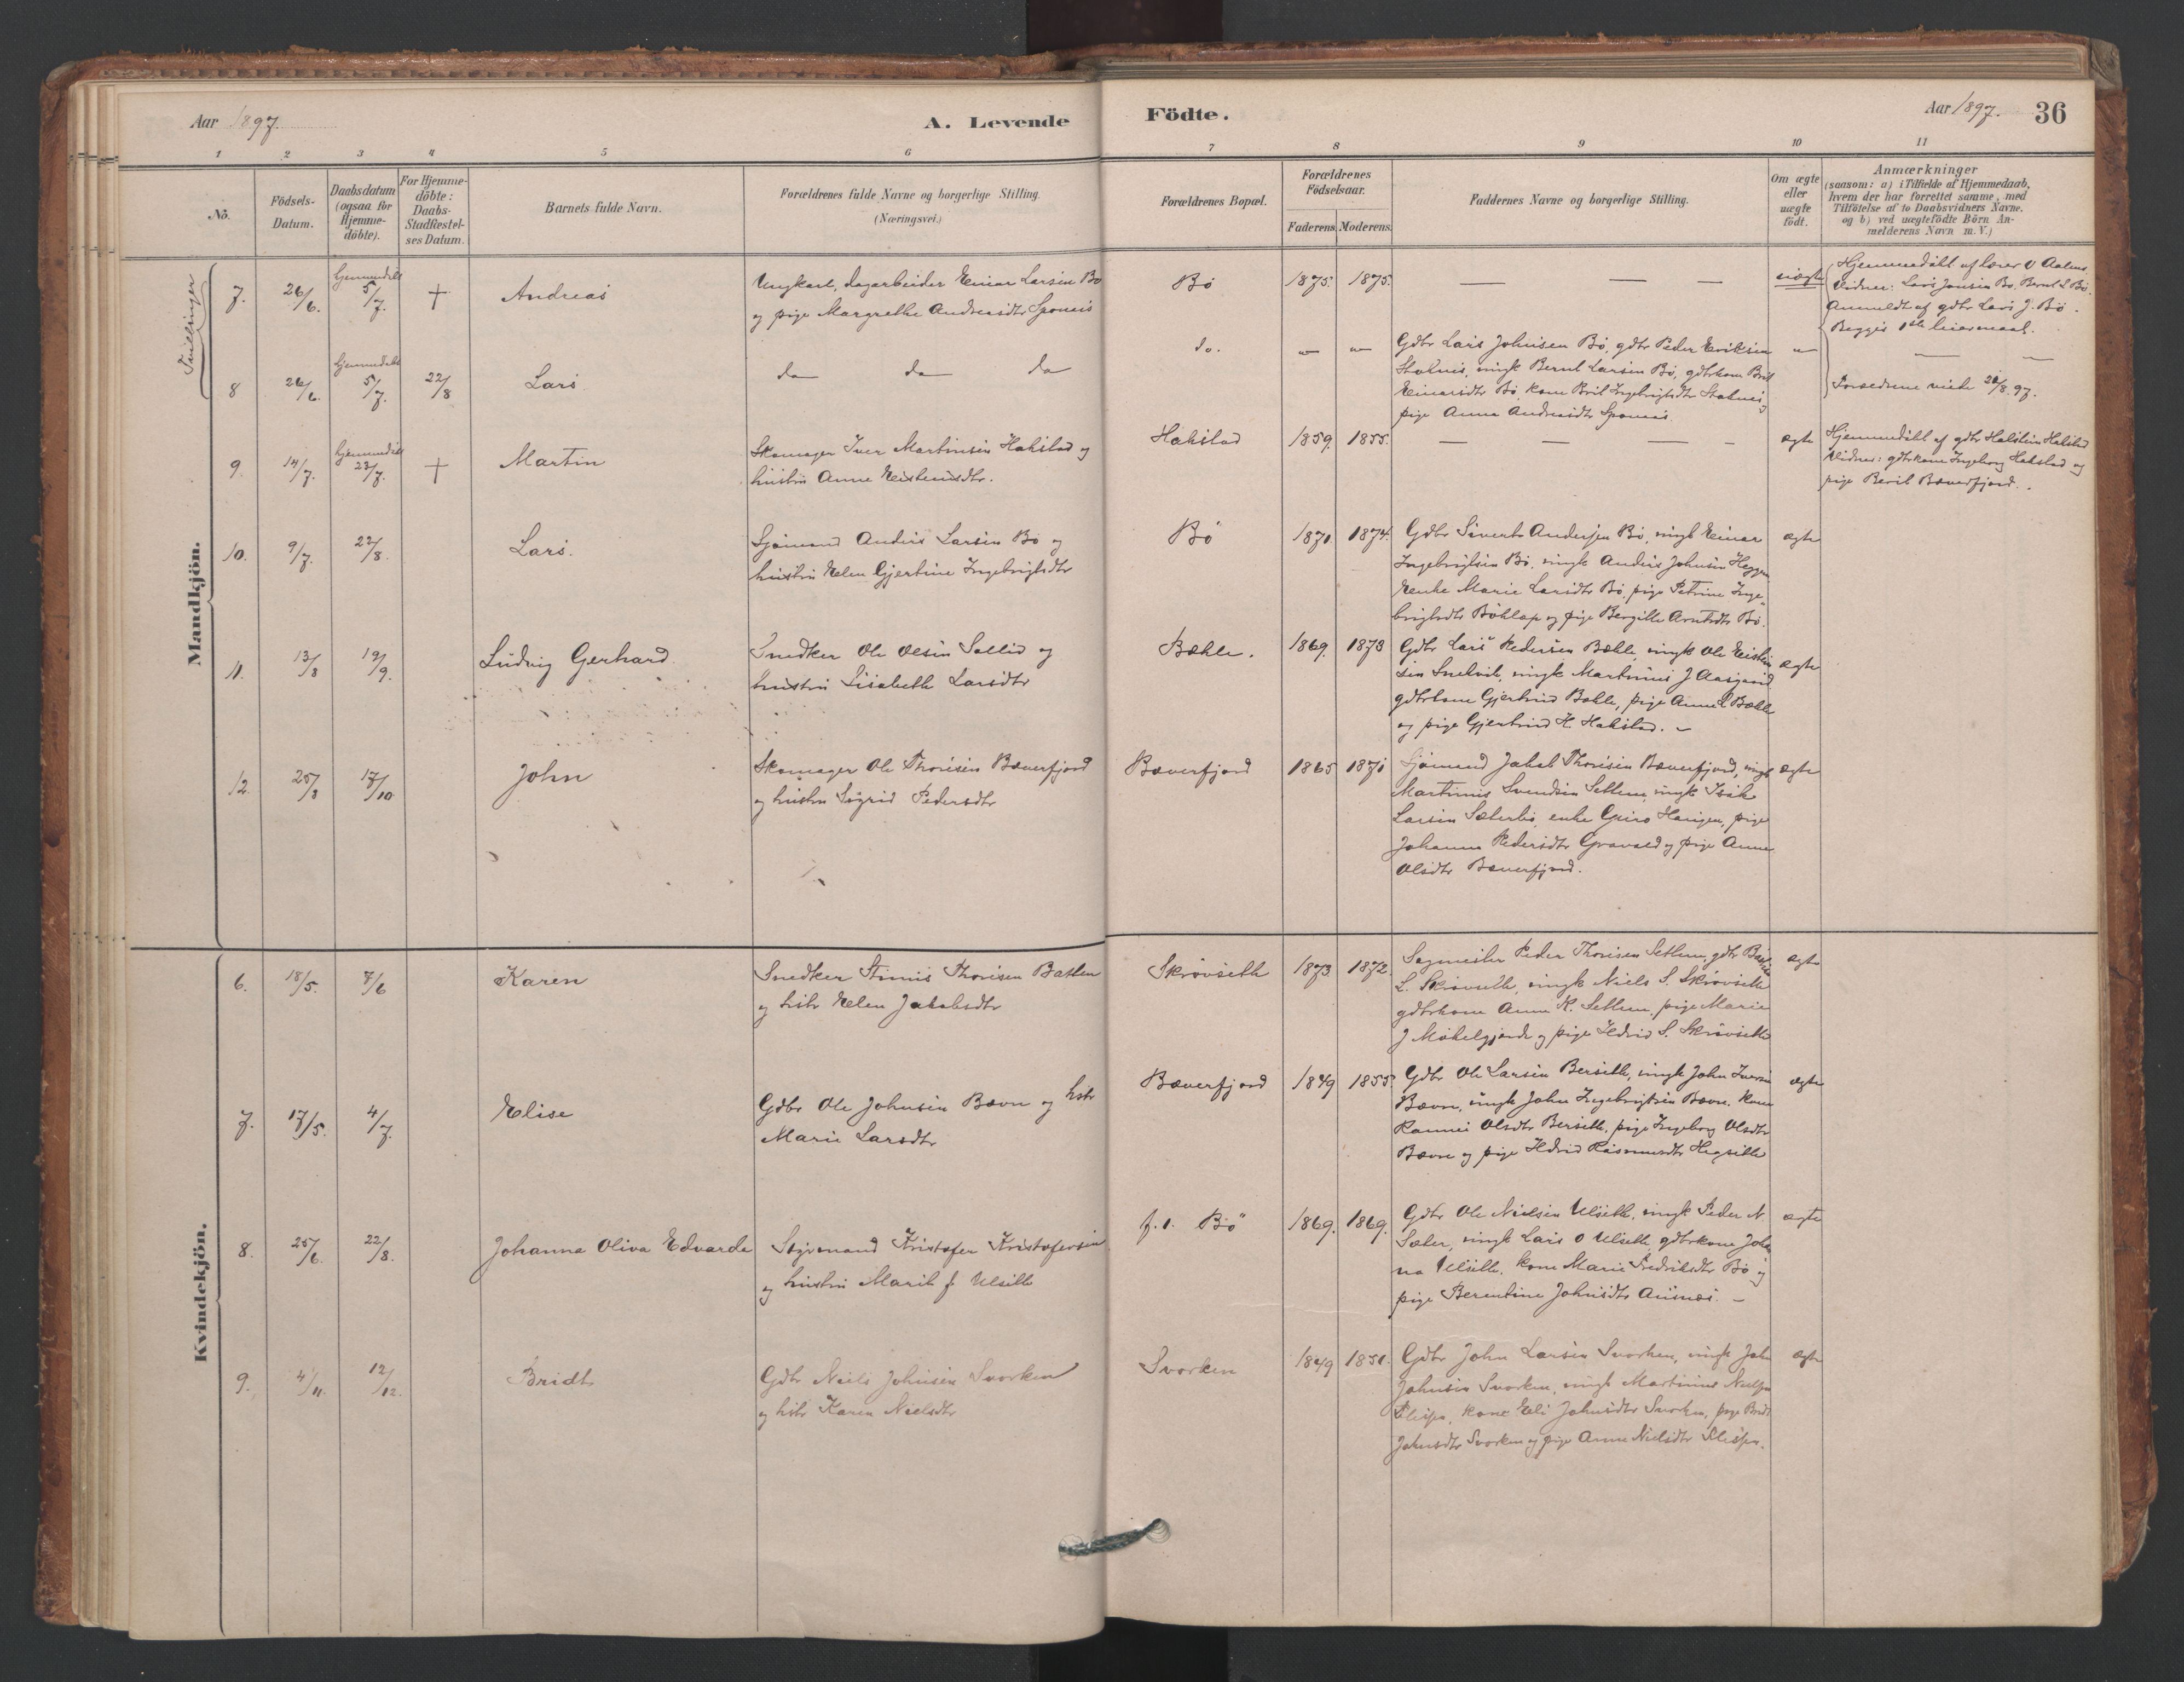 Aar 1897.
A. Levende
Födte.
Aar 1897.
36
1 2 3 4 5 6 7 8 9 10 11
No.
Födsels-
Datum.
Daabsdatum
(ogsaa for
Hjemme-
döbte).
For Hjemme-
döbte:
Daabs-
Stadfæstel-
ses Datum.
Barnets fulde Navn.
Forældrenes fulde Navne og borgerlige Stilling.
(Næringsvei.)
Forældrenes Bopæl.
Forældrenes
Födselsaar.
Faderens. Moderens.
Faddernes Navne og borgerlige Stilling.
Om ægte
eller
uægte
födt.
Anmærkninger
(saasom: a) i Tilfælde af Hjemmedaab,
hvem der har forrettet samme, med
Tilföielse af to Daabsvidners Navne,
og b) ved uægtefödte Börn An-
melderens Navn m. V.)
Mandkjön.
Tvillinger
7. 26/6. Hjemmedöbt 5/7. † Andreas
Ungkarl, dagarbeider Einar Larsen Bø
og pige Margrethe Andreasdtr
Bø 1875. 1875. — — — uægte
Hjemmedöbt af lærer O Aalens
Vidner: Lars Jonsen Bø, Bernt L Bø.
Anmeldt af gdbr Lars J. Bø.
Begges 1ste leiermaal.
8 26/6. Hjemmedöbt 5/7. 22/8 Lars.
do do do
do. " " "
Gdbr Lars Johnsen Bø, gdbr Peder Eriksen
ungk Bernt Larsen Bø, gdbrkone Brit
Einarsdtr Bø, kone Brit Ingebrigtsdtr og
pige Anna Andreasdtr
— —
Forældrene viede 97.
9. 14/7. Hjemmedöbt 23/7. † Martin
Skomager Iver Martinsen Halstad og
hustru Anne
Halstad 1859. 1855. — — — — ægte
Hjemmedöbt af gdbr Halstad
Vidner: gdbrkone Ingeborg Halstad og
pige Berit Bæverfjord.
10. 9/7. 22/8. Lars.
Sjömand Anders Larsen Bø og
hustru Elen Gjertine Ingebrigtsdtr
Bø 1871. 1874.
Gdbr Sivert Andersen Bø, ungk Einar
Ingebrigtsen Bø, ungk Anders Johnsen Heggem
Enke Marie Larsdtr Bø, pige Petrine Inge-
brigtsdtr og pige Bergitte Arntsdtr Bø.
ægte
11. 13/8 19/9. Ludvig Gerhard.
Snedker Ole Olsen og
hustru Lisabeth Larsdtr
Bæhle. 1869. 1873
Gdbr Lars Pedersen Bæhle, ungk Ole
sen Snekvik, ungk Martinus J Aasgaard
gdbrkone Gjertrud Bæhle, pige Anne L Bæhle
og pige Gjertrud H. Halstad. –
ægte
12. 25/8 17/10 John
Skomager Ole Thoresen Bæverfjord
og hustru Sigrid Pedersdtr
Bæverfjord 1865 1871
Sjömand Jakob Thoresen Bæverfjord, ungk
Martinus Svendsen Settem, ungk Isak
Larsen Sæterbø, enke Guro Haugen, pige
Johanna Pedersdtr Gravald og pige Anne
Olsdtr Bæverfjord.
ægte
Kvindekjön.
6. 18/5. 7/6 Karen
Snedker Thoresen
og hstr Elen Jakobsdtr
Skrøvseth 1873. 1872.
Sagmester Peder Thoresen Settem, gdbr
L. Skrøvseth, ungk Niels S. Skrøvseth
gdbrkone Anne K. Settem, pige Marie
J og pige Ildrid S. Skrøvseth
ægte
7. 17/5. 4/7. Elise
Gdbr Ole Johnsen Bævre og hstr
Marie Larsdtr
Bæverfjord 1849 1855.
Gdbr Ole Larsen Berseth, ungk John Iversen
Bævre, ungk John Ingebrigtsen Bævre, kone
Rannei Olsdtr Berseth, pige Ingeborg Olsdtr
Bævre og pige Ildrid Rasmusdtr
ægte
8. 25/6. 22/8. Johanna Oliva Edvarda
Kristofer Kristofersen
og hustru Marit f. Ulseth
f. t. Bø 1869. 1869.
Gdbr Ole Nielsen Ulseth, ungk Peder N.
Sæter, ungk Lars O Ulseth, gdbrkone Johan-
na Ulseth, kone Marie Fredriksdtr Bø og
pige Berentine Johnsdtr Aasnes. –
ægte
9. 4/11. 12/12. Bridt
Gdbr Niels Johnsen Svorken
og hstr Karen Nielsdtr
Svorken 1849 1851.
Gdbr John Larsen Svorken, ungk John
Johnsen Svorken, ungk Martinus
kone Eli Johnsdtr Svorken, pige Bridt
Johnsdtr Svorken og pige Anne Nielsdtr
ægte